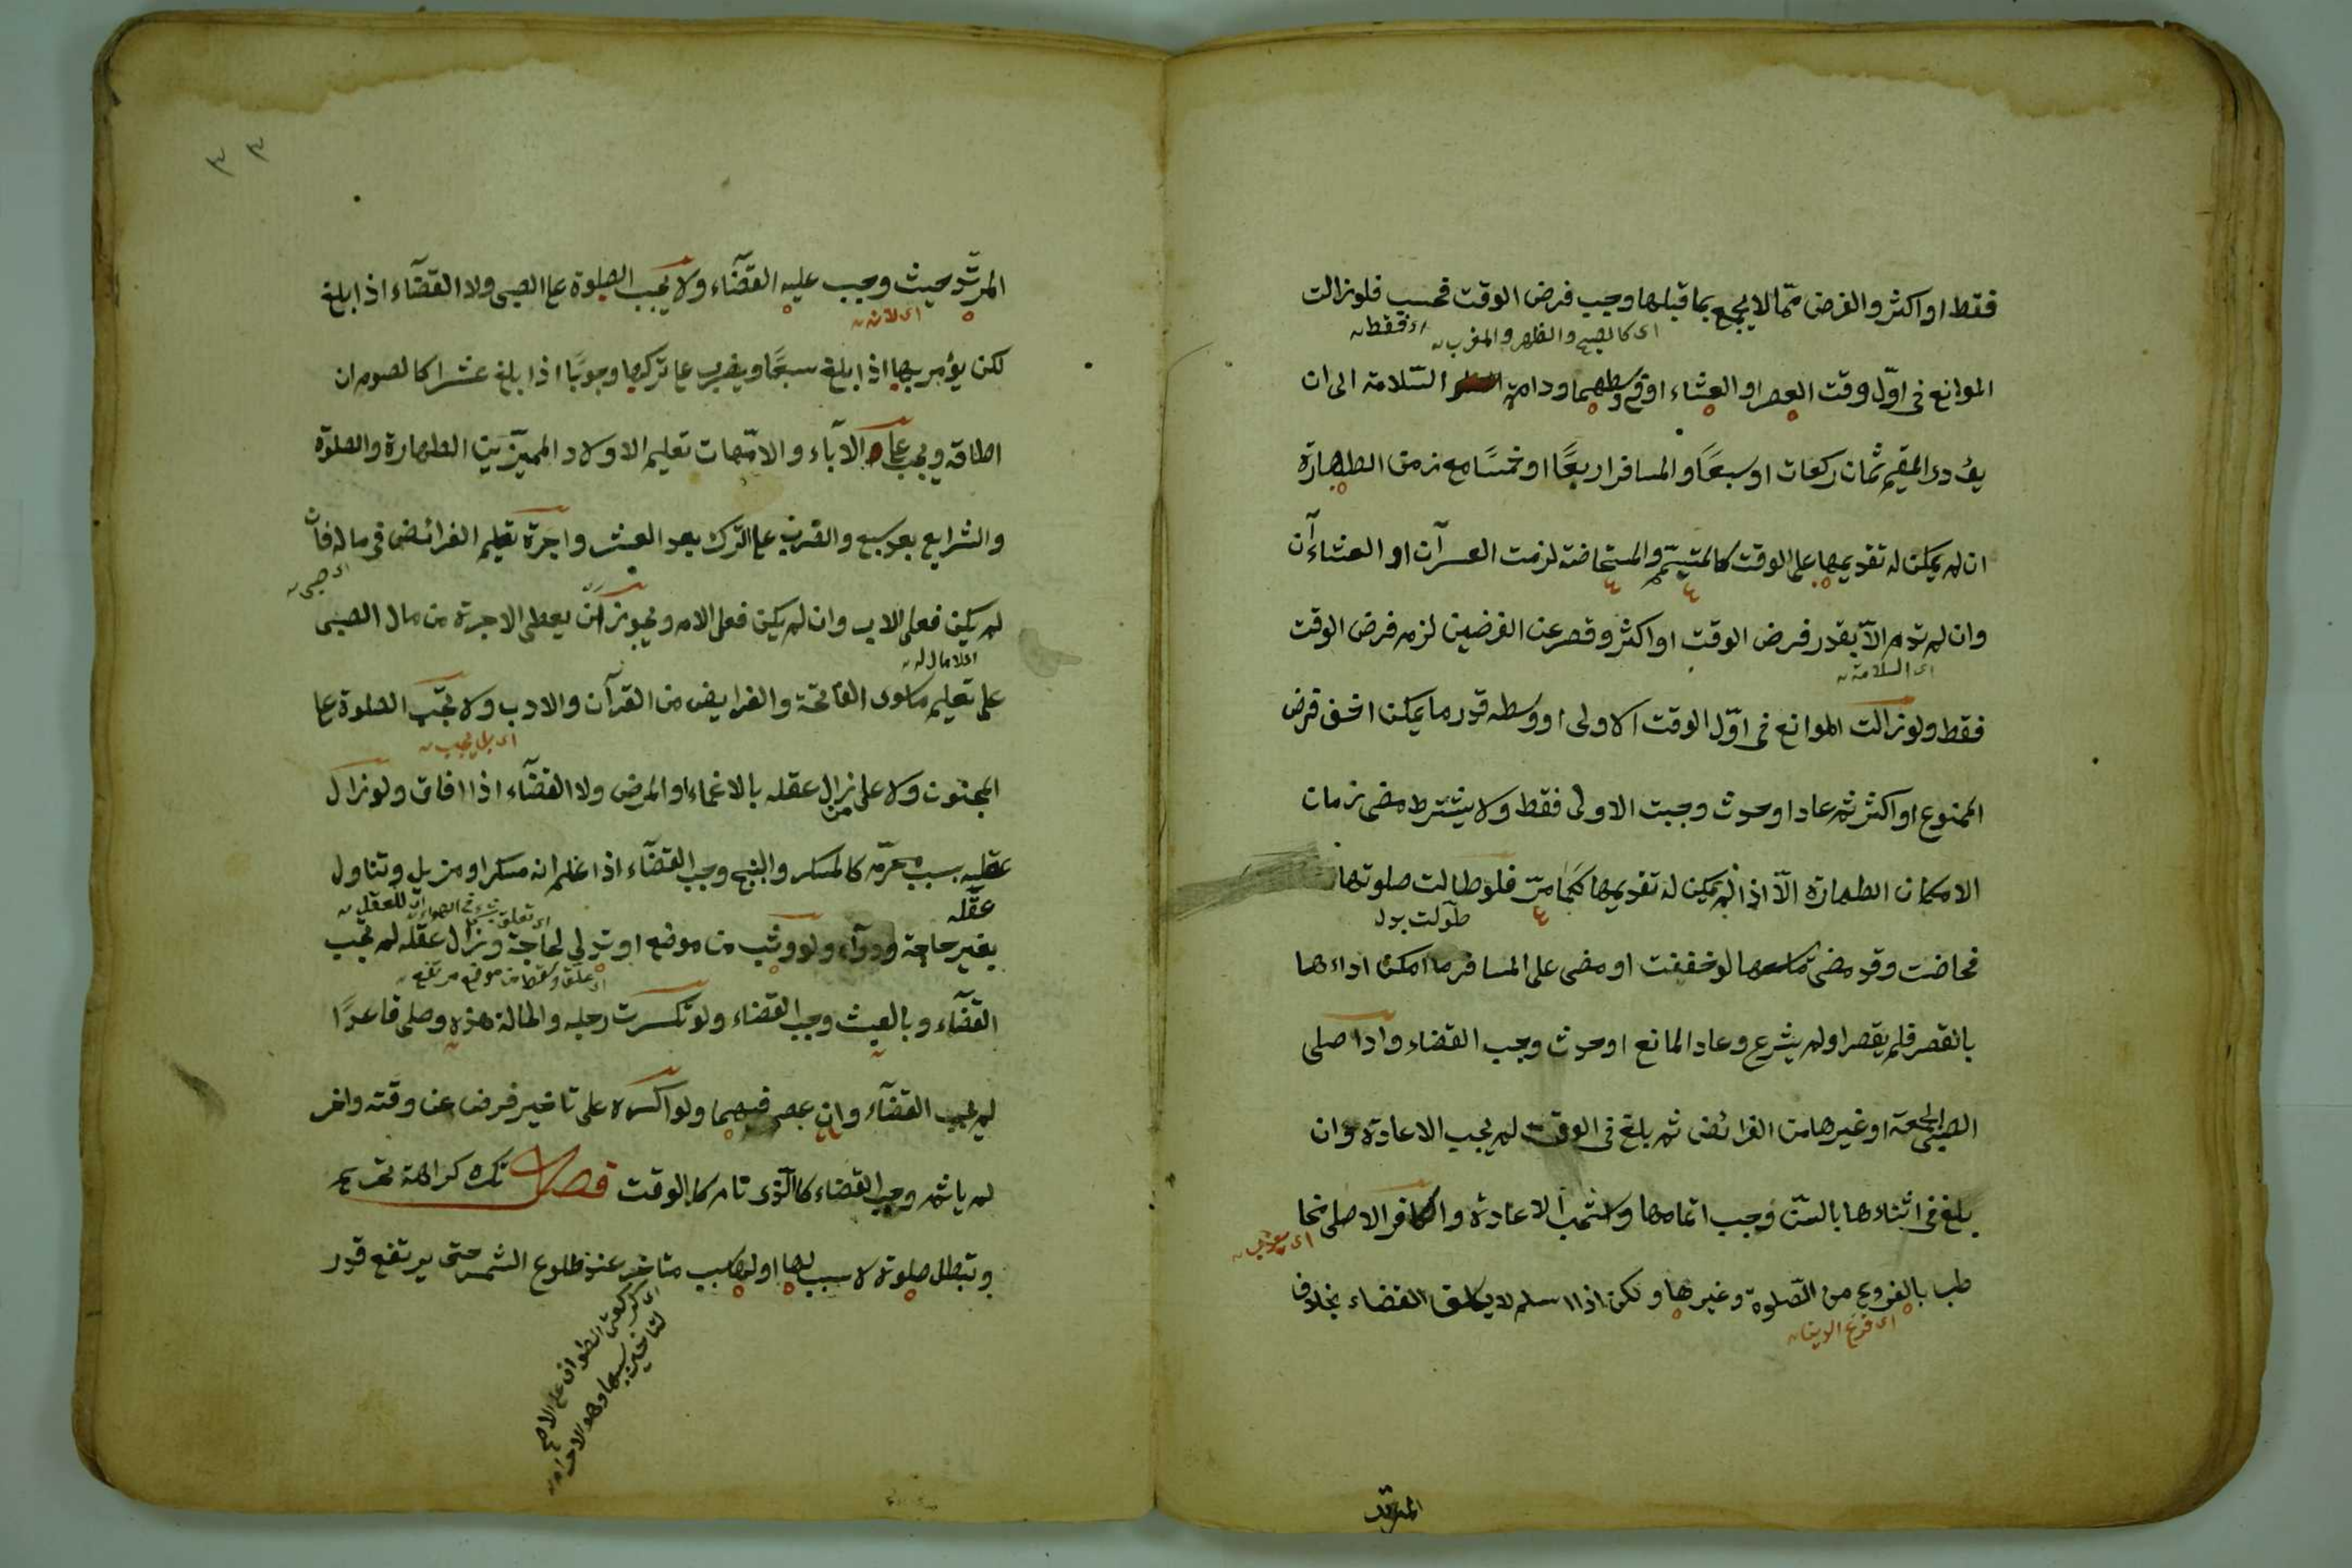 فقط او اكثر والفرض مما لا يجمع بما قبلها وجب فرض الوقت فحسب فلو زالت
اى كالصبح والظهر والمغرب
اى فقط
الموانع فى اوّل وقت العصر او العشاء او فى وسطهما ودامت السّلامة الى ان
يؤدى المقيم ثمان ركعات او سبعًا والمسافر اربعًا او خمسًا مع زمن الطهارة
ان لم يمكن له تقديمها على الوقت كالمتيمّم والمستحاضة لزمت العصران او العشاءآن
وان لم تدم الّا بقدر فرض الوقت او اكثر وقصر عن الفرضين لزم فرض الوقت
اى السلامة
فقط ولو زالت الموانع فى اوّل الوقت الاولى او وسطه قدر ما يمكن اخف فرض
الممنوع او اكثر ثم عاد او حدث وجبت الاولى فقط ولا يشترط مضى زمان
الامكان الطهارة الّا اذا لم يمكن له تقديمها كما مرّ فلو طالت صلوتها
طوّلت بدل
فحاضت وقد مضى لو خففت او مضى على المسافر ما امكن اداءها
بالقصر فلم يقصر او لم يشرع وعاد المانع او حدث وجب القضاء واذا صلى
الصبى الجمعة او غيرها من الفرائض ثم بلغ فى الوقت لم يجب الاعادة وان
بلغ فى اثناءها بالسنّ وجب اتمامها واستحب الاعادة والكافر الاصلى مخا
طب بالفروع من الصّلوة وغيرها ولكن اذا اسلم لا يكلف القضاء بخلاف
اى فرع الايمان
المرتدّ
المرتدّ حيث وجب عليه القضآء ولا يجب الصلوة على الصبى ولا القضآء اذا بلغ
اى لانه
لكن يؤمر بها اذا بلغ سبعًا ويضرب على تركها وجوبًا اذا بلغ عشرا كالصوم ان
اطاقه ويجب على الآباء والامّهات تعليم الاولاد المميّزين الطهارة والصلوة
والشرايع بعد سبع والضرب على الترك بعد العشر واجرة تعليم الفرائض فى ماله فان
اى صبى
لم يكن فعلى الاب وان لم يكن فعلى الام ويجوز ان يعطى الاجرة من مال الصبى
اى لا مال له
على تعليم ما سوى الفاتحة والفرايض من القرآن والادب ولا تجب الصلوة على
اى بل يجب
المجنون ولا على من زال عقله بالاغماء او المرض ولا القضآء اذا افاق ولو زال
عقله بسبب محرّم كالمسكر والبنج وجب القضآء اذا علم انه مسكر او مزيل وتناول
عقله
اى للعقل
بغير حاجة ودوآء ولو وثب من موضع او تدلى لحاجة وزال عقله لم تجب
القضآء وبالعبث وجب القضاء ولو تكسرت رجليه والحالة هذه وصلى قاعدًا
لم يجب القضآء وان عصى فيهما ولو اكره على تاخير فرض عن وقته واخر
لم ياثم وجب القضاء كالذى نام كل الوقت فصل تكره كراهة تحريم
وتبطل صلوة لا سبب لها او لها سبب متاخر عند طلوع الشمس حتى يرتفع قدر
اى كركعتى الطواف على الاصح
لتاخير سببها وهو الاحرام